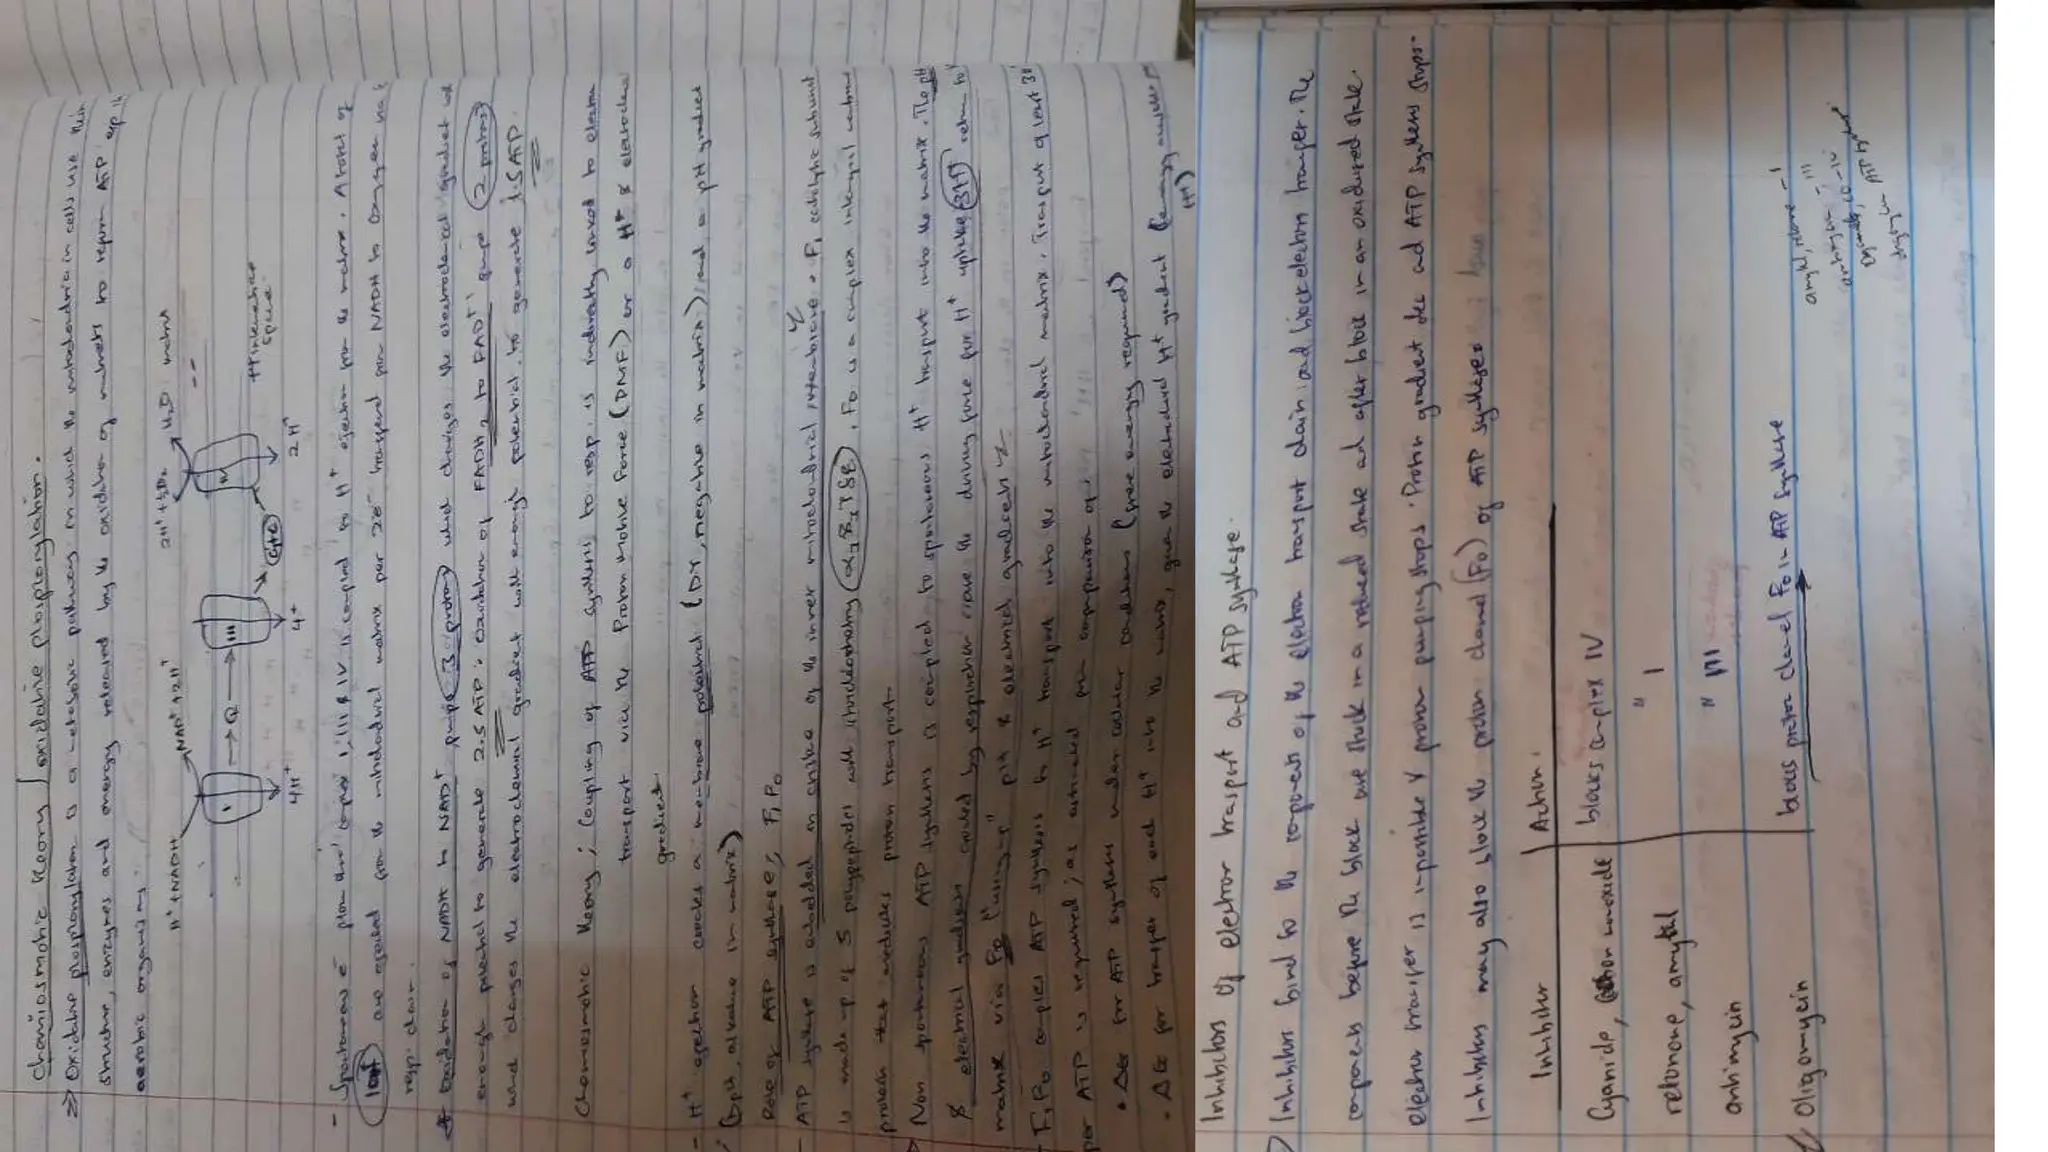 Chemiosmotic theory / oxidative phosphorylation.
=> Oxidative phosphorylation is a metabolic pathway in which the mitochondria in cells use their
structure, enzymes and energy released by the oxidation of nutrients to reform ATP.
aerobic organisms
H⁺ + NADH
NAD⁺ + 2H⁺
2H⁺ + ½O₂
H₂O
matrix
I
→ Q →
III
Cyt C
IV
4H⁺
4H⁺
2H⁺
Intermembrane
space
- Spontaneous e⁻ flow thro' complex I, III & IV is coupled to H⁺ ejection from the matrix. A total of
10H⁺ are ejected from the mitochondrial matrix per 2e⁻ transferred from NADH to oxygen via
resp. chain.
Oxidation of NADH to NAD⁺ pumps 3 protons which charges the electrochemical gradient with
enough potential to generate 2.5 ATP. Oxidation of FADH₂ to FAD⁺ pumps 2 protons
which charges the electrochemical gradient with enough potential to generate 1.5 ATP.
Chemiosmotic theory ; Coupling of ATP synthesis to resp. is indirectly linked to electron
transport via the Proton motive force (PMF) or a H⁺ & electrochemical
gradient
- H⁺ ejection creates a membrane potential (Δψ, negative in matrix) and a pH gradient
(ΔpH, alkaline in matrix)
Role of ATP synthase; F₁F₀
- ATP synthase is embedded in cristae of the inner mitochondrial membrane. F₁ catalytic subunit
is made up of 5 polypeptides with stoichiometry α₃β₃γδε. F₀ is a complex integral membrane
protein that mediates proton transport.
Non spontaneous ATP synthesis is coupled to spontaneous H⁺ transport into the matrix. The pH
& electrical gradients created by respiration are the driving force for H⁺ uptake. 3H⁺ return to
matrix via F₀ "using up" pH & electrical gradients
- F₁F₀ couples ATP synthesis to H⁺ transport into the mitochondrial matrix. Transport of least 3H⁺
per ATP is required; as estimated from comparison of;
• ΔG for ATP synthesis under cellular conditions (free energy required)
• ΔG for transfer of each H⁺ into the matrix, given the electrochemical H⁺ gradient (energy
H⁺)
Inhibitors of electron transport and ATP synthase.
Inhibitors bind to the components of the electron transport chain and block electron transfer. The
components before the block are stuck in a reduced state and after block in an oxidised state.
electron transfer is impossible & proton pumping stops. Proton gradient dec and ATP synthesis stops.
Inhibitors may also block the proton channel (F₀) of ATP synthase
Inhibitor
Action.
Cyanide, carbon monoxide
blocks complex IV
retenone, amytal
" I
antimycin
" III
Oligomycin
blocks proton channel F₀ in ATP synthase
amytal, retenone - I
antimycin - III
cyanide, CO - IV